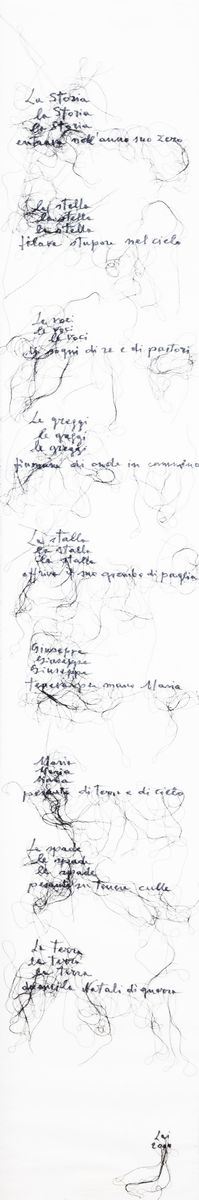 La Storia
la Storia
la Storia
entrava nell'anno suo zero
La stella
la stella
la stella
filava stupore nel cielo
Le voci
le voci
le voci
i sogni di re e di pastori
Le greggi
le greggi
le greggi
fiumana di onde in cammino
La stalla
la stalla
la stalla
offriva il suo grembo di paglia
Giuseppe
Giuseppe
Giuseppe
teneva per mano Maria
Maria
Maria
Maria
pesante di terra e di cielo
Le spade
le spade
le spade
pesanti su tenere culle
La terra
la terra
la terra
natali di guerra
Lai